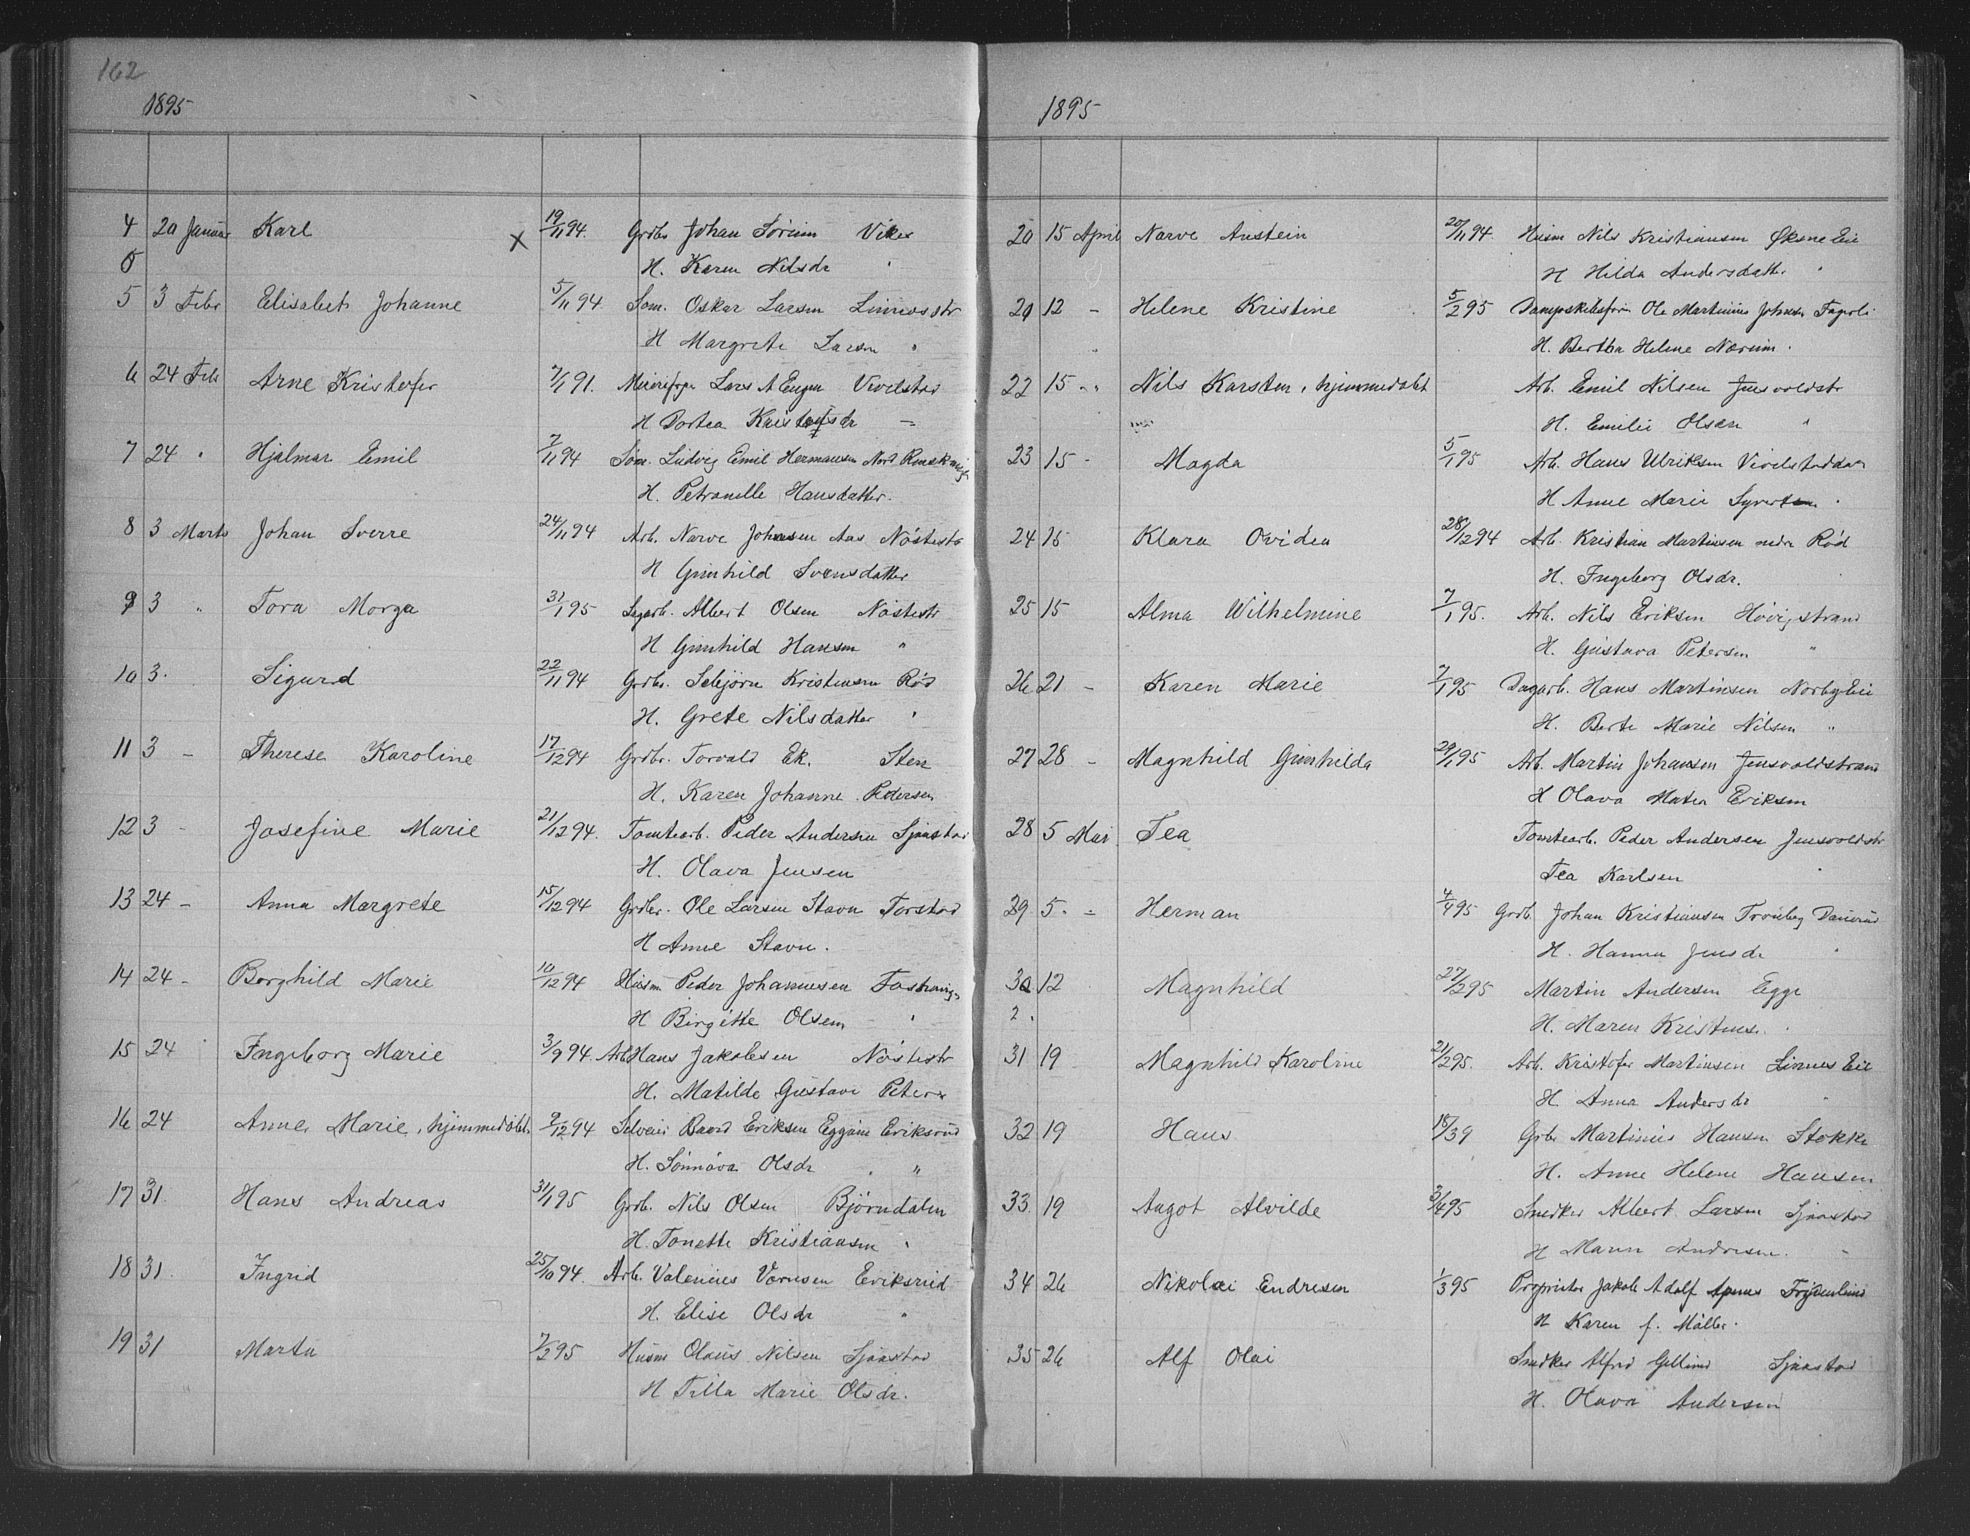 162
1895
4 20 Januar Karl x 19/11 94. Grdbr Johan Sørum Viker
H. Karen Nilsdr "
5 3 Febr Elisabet Johanne 5/11 94 Søm. Oskar Larsen Linnesstr
H Margrete Larsen "
6 24 Febr Arne Kristofer 7/1 91. Lars A Enger Vivelstad
H Dortea Kristofsdr –
7 24 " Hjalmar Emil 7/11 94 Søm. Ludvig Emil Hermansen Nord
H. Petronelle Hansdatter.
8 3 Marts Johan Sverre 24/11 94 Arb. Narve Johnsen Aas Nøstestr
H Gunhild Svensdatter
9 3 " Tora Morga 31/1 95 Sagarb. Albert Olsen Nøstestr
H Gunhild Hansen "
10 3. Sigurd 22/11 94 Grdbr. Sebjørn Kristensen Rød
H. Grete Nilsdatter "
11 3 – Therese Karoline 17/12 94 Grdbr. Torvald Ek. Sten
H. Karen Johanne Pedersen
12 3 – Josefine Marie 21/12 94. Tomtearb. Peder Andersen Sjaastad
H. Olava Jensen
13 24 – Anna Margrete 15/12 94 Grdbr. Ole Larsen Stavn Torstad
H Anne Stavn.
14 24 – Borghild Marie 10/12 94 Husm Peder Johannesen
H Birgitte Olsen "
15 24 Ingeborg Marie 3/9 94 Arb Hans Jakobsen Nøstestr
H. Matilde Gustava Peters
16 24 Anne Marie, hjemmedøbt. 9/12 94 Selveier Eriksen Eriksrud
H. Sønnøva Olsdr "
17 31. Hans Andreas 31/1 95 Grdb. Nils Olsen Bjørndalen
H. Tonette Kristiansen "
18 31. Ingrid 25/10 94. Arb. Valenius Vornsen Eriksrud
H. Elise Olsdr "
19 31 Marta 7/2 95 Husm Olaus Nilsen Sjaastad
H Tilla Marie Olsdr.
1895
20 15 April Narve Anstein 20/11 94. Husm Nils Kristiansen Øksne Eie
H Hilda Andersdatter "
20 12 – Helene Kristine 5/2 95 Ole Martinius Johnsen Fagerli
H. Bertha Helene Nærum.
22 15 – Nils Karsten, hjemmedøbt Arb. Emil Nilsen Jensvoldstr
H. Emilie Olsen "
23 15 – Magda 5/1 95 Arb. Hans Ulriksen
H Anne Marie Syversen
24 15 Klara Ovidea 28/12 94 Arb. Kristian Martinsen nedre Rød
H. Ingeborg Olsdr.
25 15 Alma Wilhelmine 7/1 95. Arb. Nils Eriksen Høvigstrand
H. Gustava Petersen "
26 21 – Karen Marie 7/1 95 Dagarb. Hans Martinsen Norby Eie
H. Berte Marie Nilsen "
27 28 – Magnhild Gunhilda 29/1 95 Arb. Martin Johansen Jensvoldstrand
H Olava Matea Eriksen
28 5 Mai Tea Tomtearb. Peder Andersen Jensvoldstr
Tea Karlsen
29 5. – Herman 4/4 95 Grdb. Johan Kristiansen
H. Hanna Jensdr "
30 12 Magnhild 27/2 95 Martin Andersen Egge
H. Maren Kristens.
31 19 Magnhild Karoline 21/2 95. Arb. Kristofer Martinsen Linnes Eie
H. Anna Andersdr
32 19 Hans 18/3 9 Grbr Martinus Hansen Stokke
H. Anne Helene Hansen
33. 19 Aagot Alvilde 3/4 95 Snedker Albert Larsen Sjaastad
H Maren Andresen. –
34 26 Nikolai Endresen 1/3 95 Proprietær Jakob Adolf Frydenlund
H Karen f. Møller.
35 26 Alf Olai Snedker Alfred Sjaastad
H. Olava Andersen